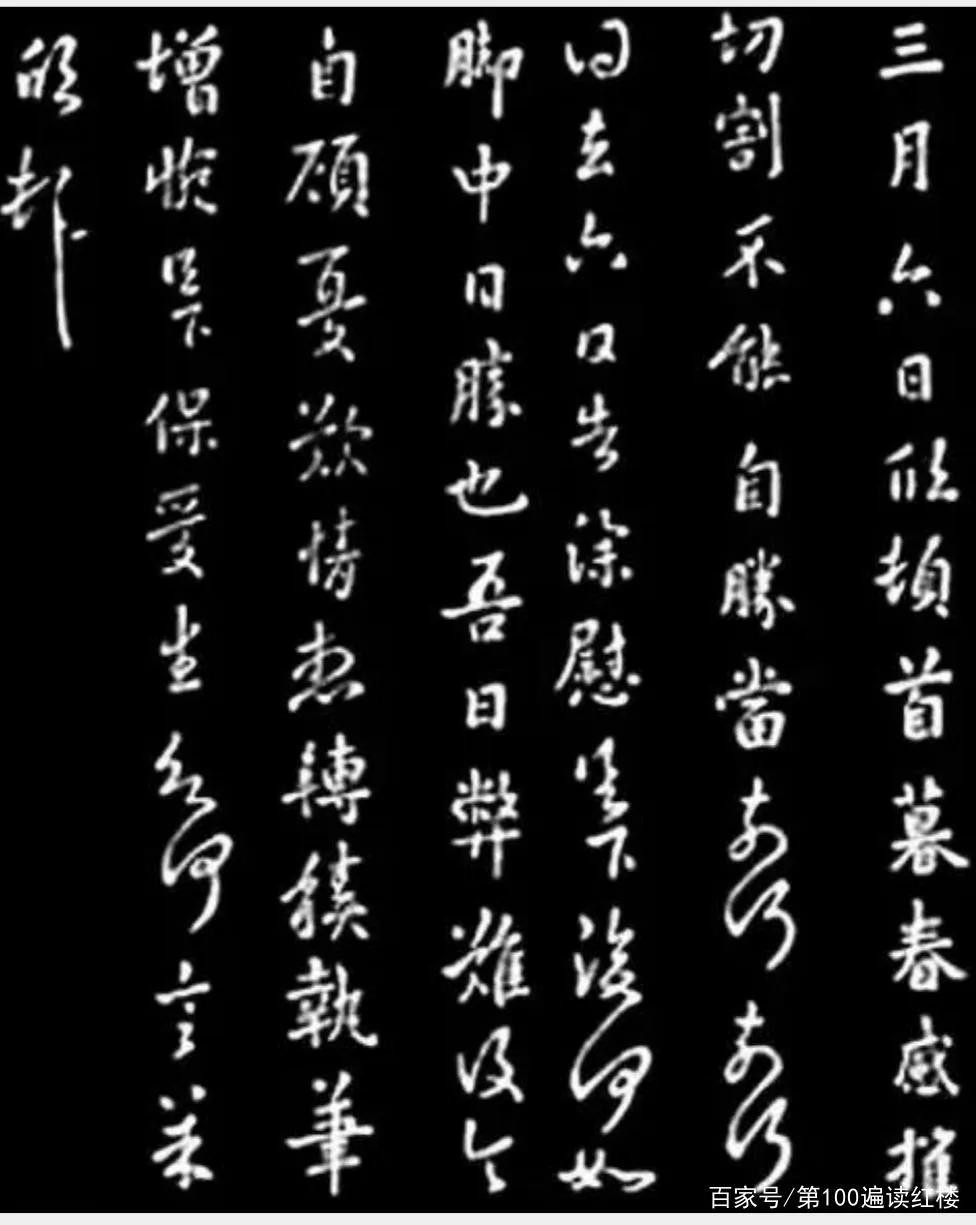 三月六日欣頓首暮春感摧
切割不能自勝當奈何奈何
得去六日告深慰足下後何如
脚中日勝也吾日弊難復令
自顧憂歎情想轉積執筆
增惋足下保愛何言羊
欣頓
百家号/第100遍读红楼